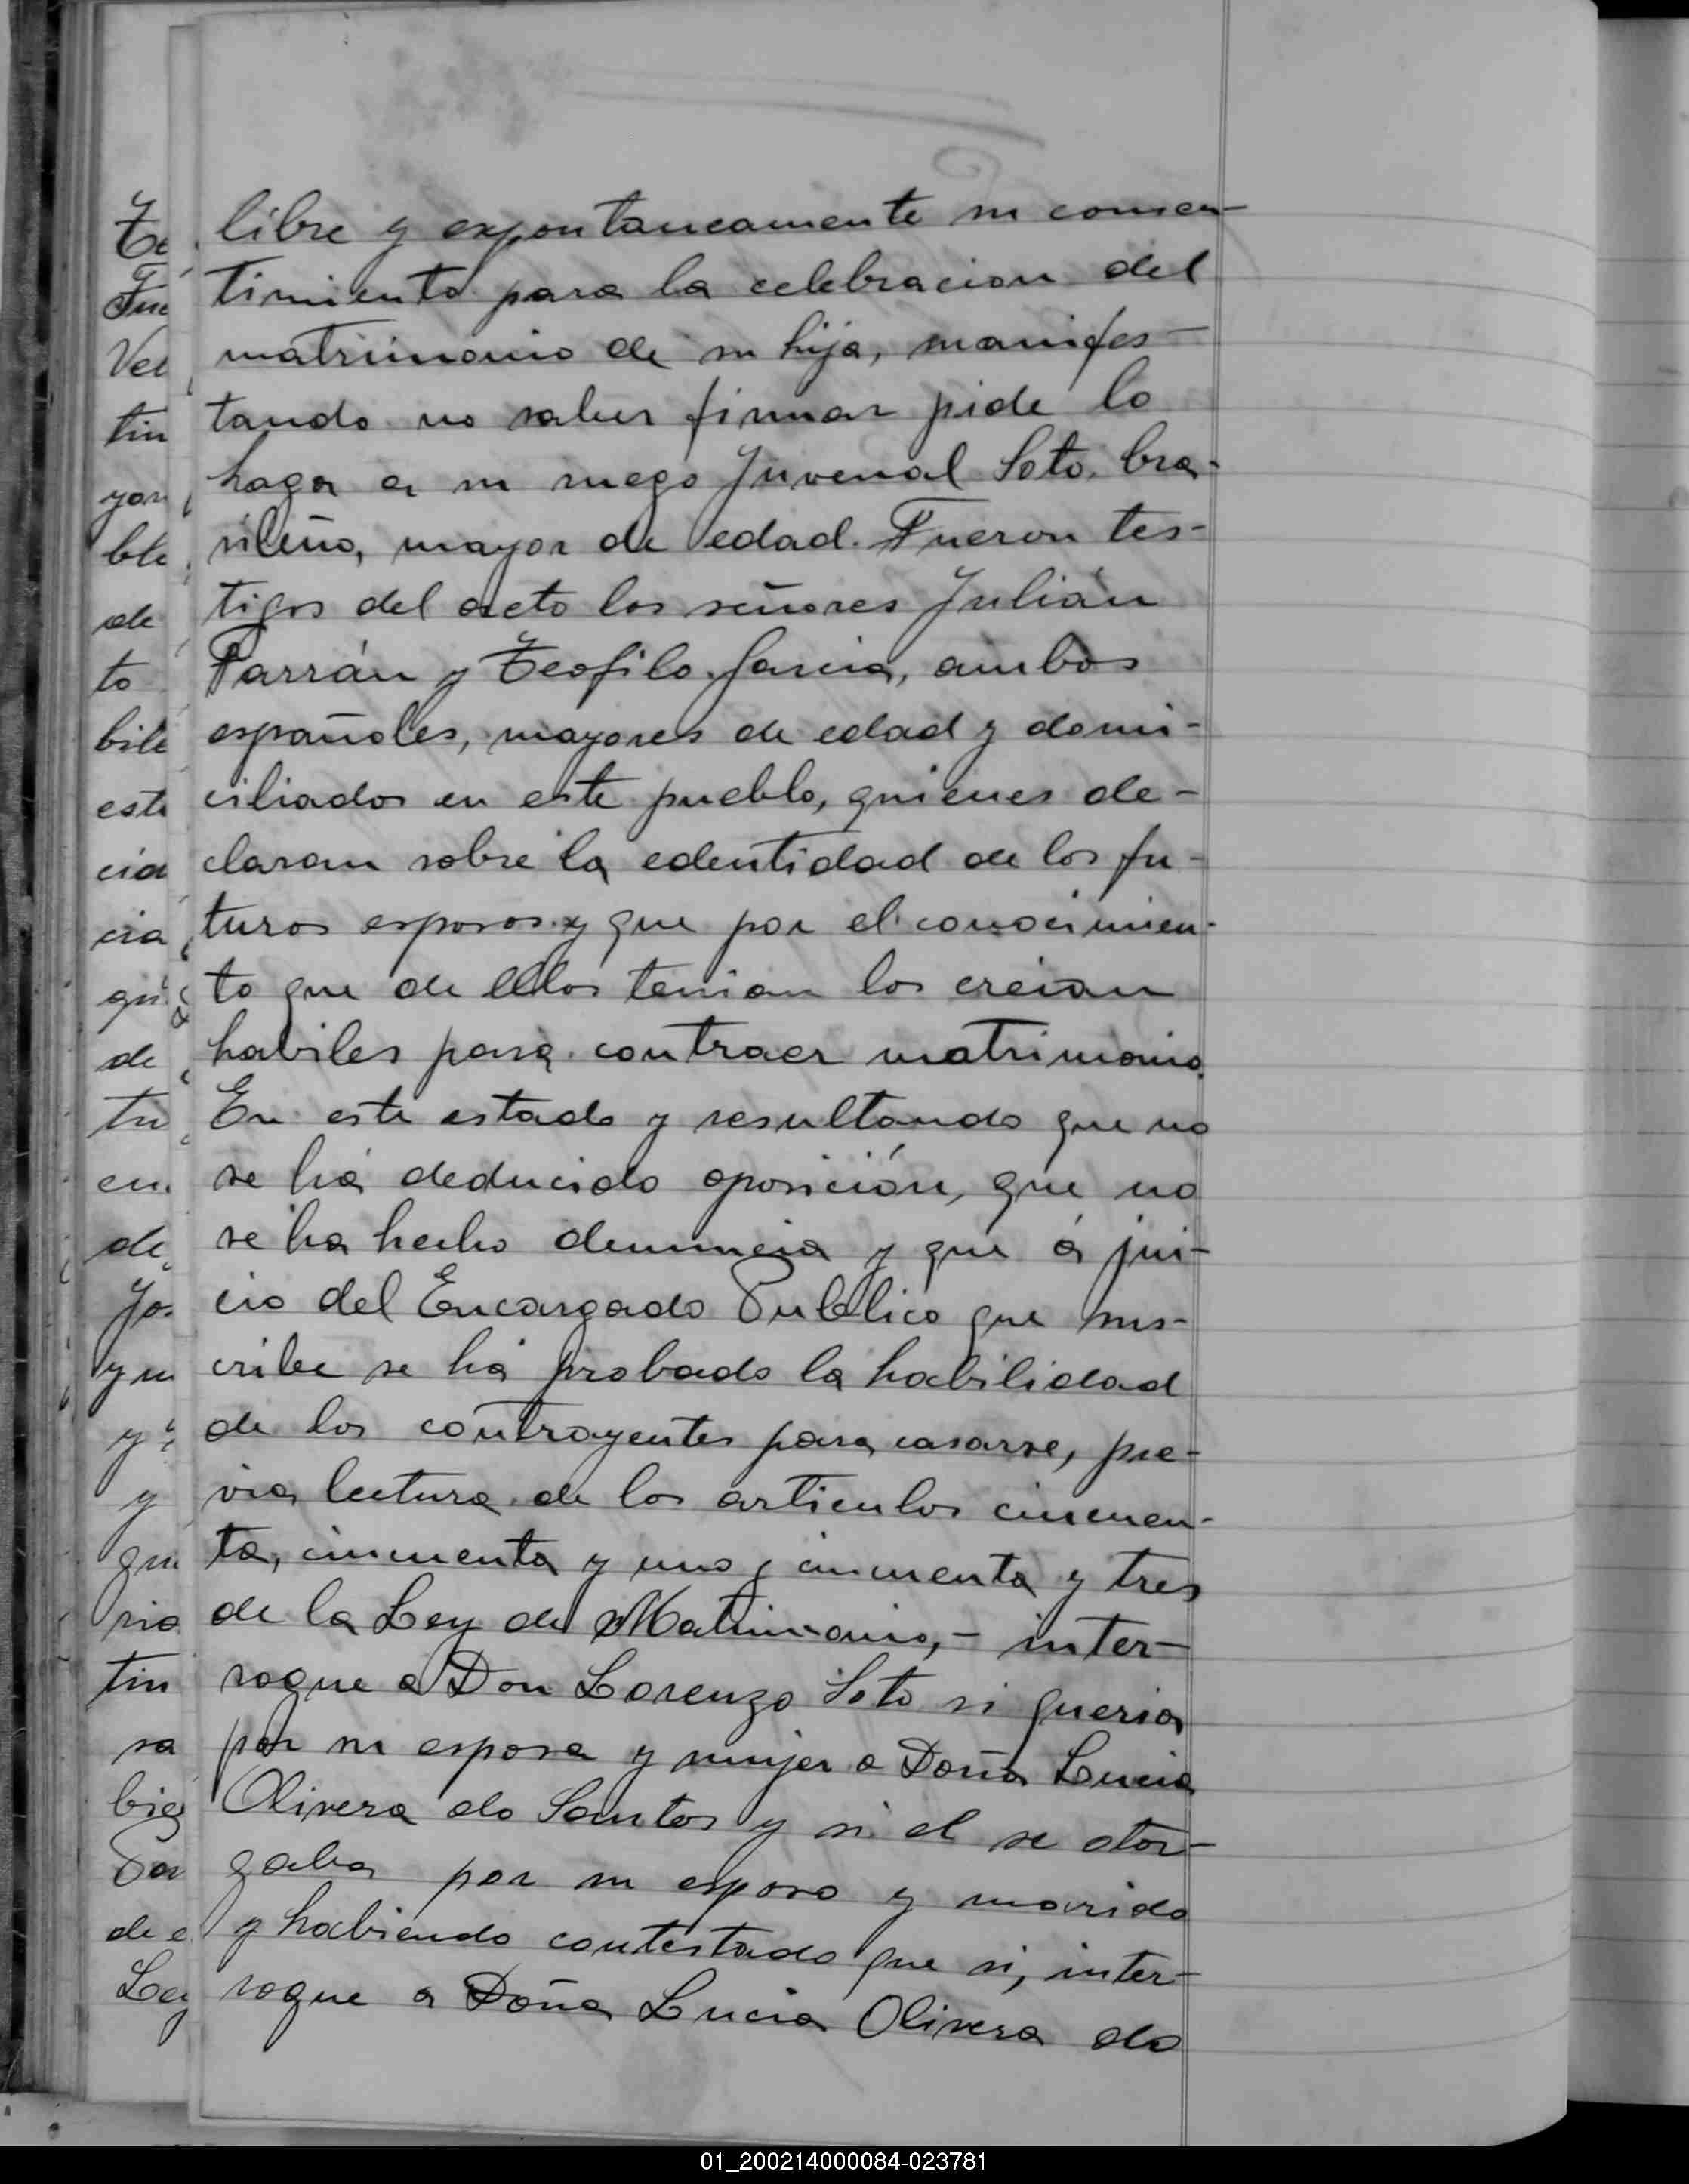 libre y expontaneamente su consen-
timiento para la celebracion del
matrimonio de su hija, manifes-
tando no saber firmar pide lo
haga a su ruego Juvenal Soto, bra-
sileño, mayor de edad. Fueron tes-
tigos del acto los señores Julián
Parrán y Teofilo Garcia, ambos
españoles, mayores de edad y domi-
ciliados en este pueblo, quienes de-
claran sobre la edentidad de los fu-
turos esposos y que por el conocimien-
to que de ellos tenian los creian
habiles para contraer matrimonio.
En este estado y resultando que no
se há deducido oposición, que no
se ha hecho denuncia y que á jui-
cio del Encargado Publico que sus-
cribe se há probado la habilidad
de los contrayentes para casarse, pre-
via lectura de los articulos cincuen-
ta, cincuenta y uno y cincuenta y tres
de la Ley de Matrimonio, - inter-
rogue a Don Lorenzo Soto si queria
por su esposa y mujer a Doña Lucia
Olivera do Santos y si el se otor-
gaba por su esposo y marido
y habiendo contestado que si, inter-
rogue a Doña Lucia Olivera do
Te
Fue
Vec
tin
yor
ble
de
to
bile
este
cia
cia
qu
de
tu
en
de
Jo
y su
y
y
qu
rio
tin
sa
bie
Pa
de e
Ley
01_200214000084-023781